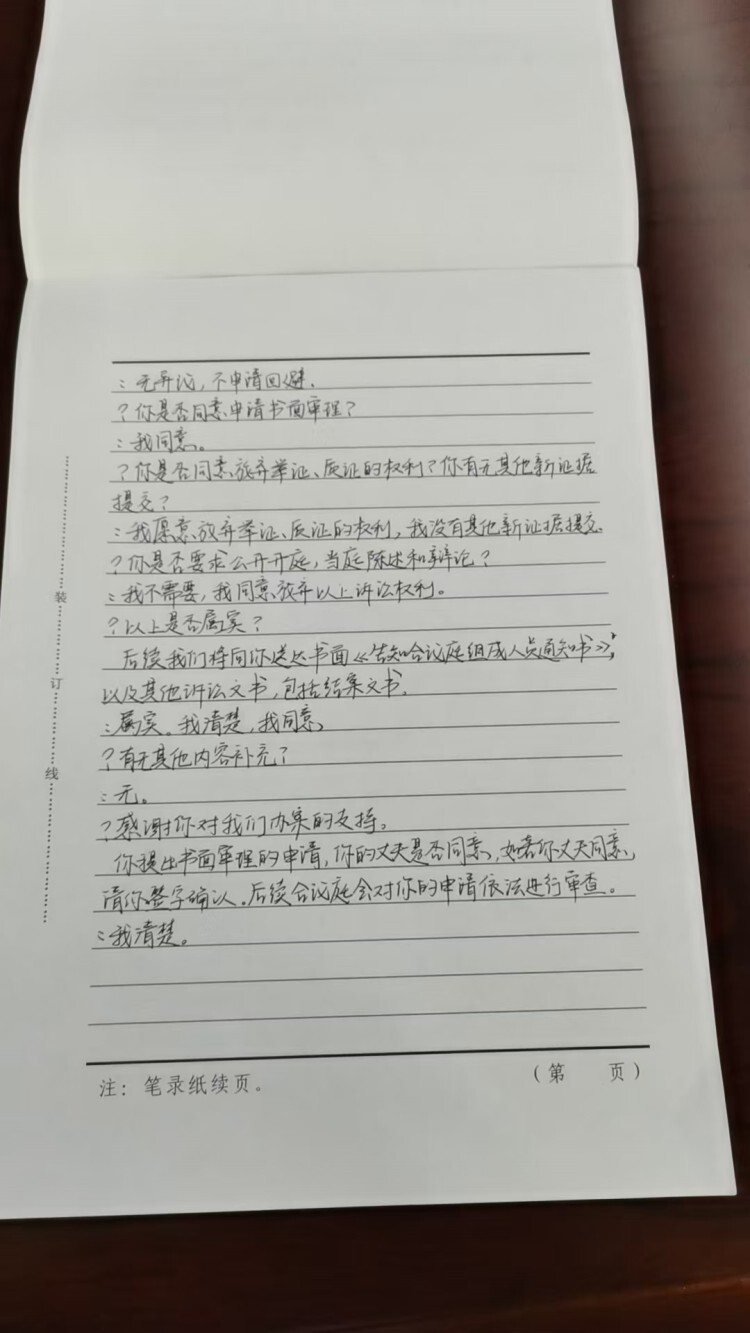 ：无异议，不申请回避．
？你是否同意申请书面审理？
：我同意。
？你是否同意放弃举证、质证的权利？你有无其他新证据
提交？
：我愿意放弃举证、质证的权利，我没有其他新证据提交．
？你是否要求公开开庭，当庭陈述和辩论？
：我不需要，我同意放弃以上诉讼权利。
？以上是否属实？
后续我们将向你送达书面《告知合议庭组成人员通知书》，
以及其他诉讼文书，包括结案文书．
：属实。我清楚，我同意。
？有无其他内容补充？
：无。
？感谢你对我们办案的支持。
你提出书面审理的申请，你的丈夫是否同意，如若你丈夫同意，
请你签字确认．后续合议庭会对你的申请依法进行审查。
：我清楚。
注：笔录纸续页。
（第 页）
装
订
线